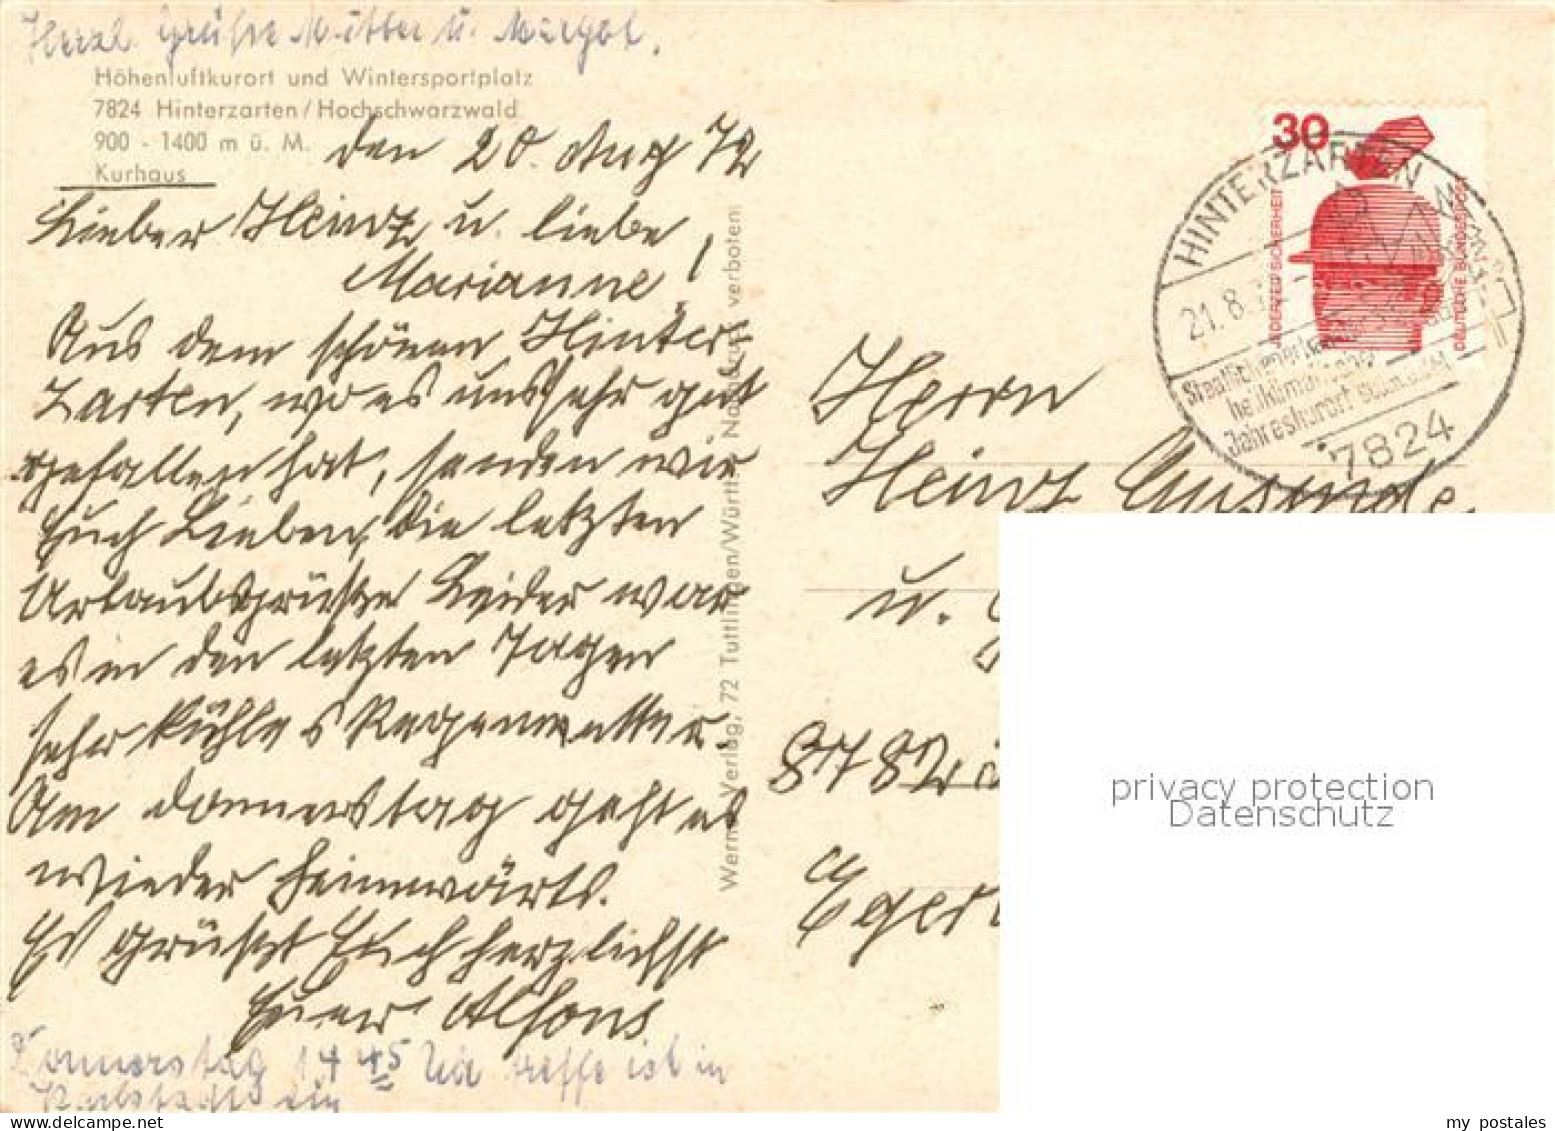 Herzl. Grüße Mutter u. Margot.
Höhenluftkurort und Wintersportplatz
7824 Hinterzarten / Hochschwarzwald
900 - 1400 m ü. M.
Kurhaus
den 20. Aug 72
Lieber Heinz u. liebe
Marianne!
Aus dem schönen Hinter-
zarten, wo es uns sehr gut
gefallen hat, senden wir
Euch Lieben, die letzten
Urlaubsgrüße Leider war
es in den letzten Tagen
sehr kühles Regenwetter.
Am Donnerstag geht es
wieder heimwärts.
Es grüßt Euch herzlichst
Euer Alfons
Donnerstag 14 45 Uhr treffe ich in
ein
Werner Verlag, 72 Tuttlingen/Württ. Nachdruck verboten
30
JEDERZEIT SICHERHEIT
DEUTSCHE BUNDESPOST
HINTERZARTEN
21.8.
heilklimatischer
Jahreskurort
7824
Herrn
Heinz
u.
8782
privacy protection
Datenschutz
my postales